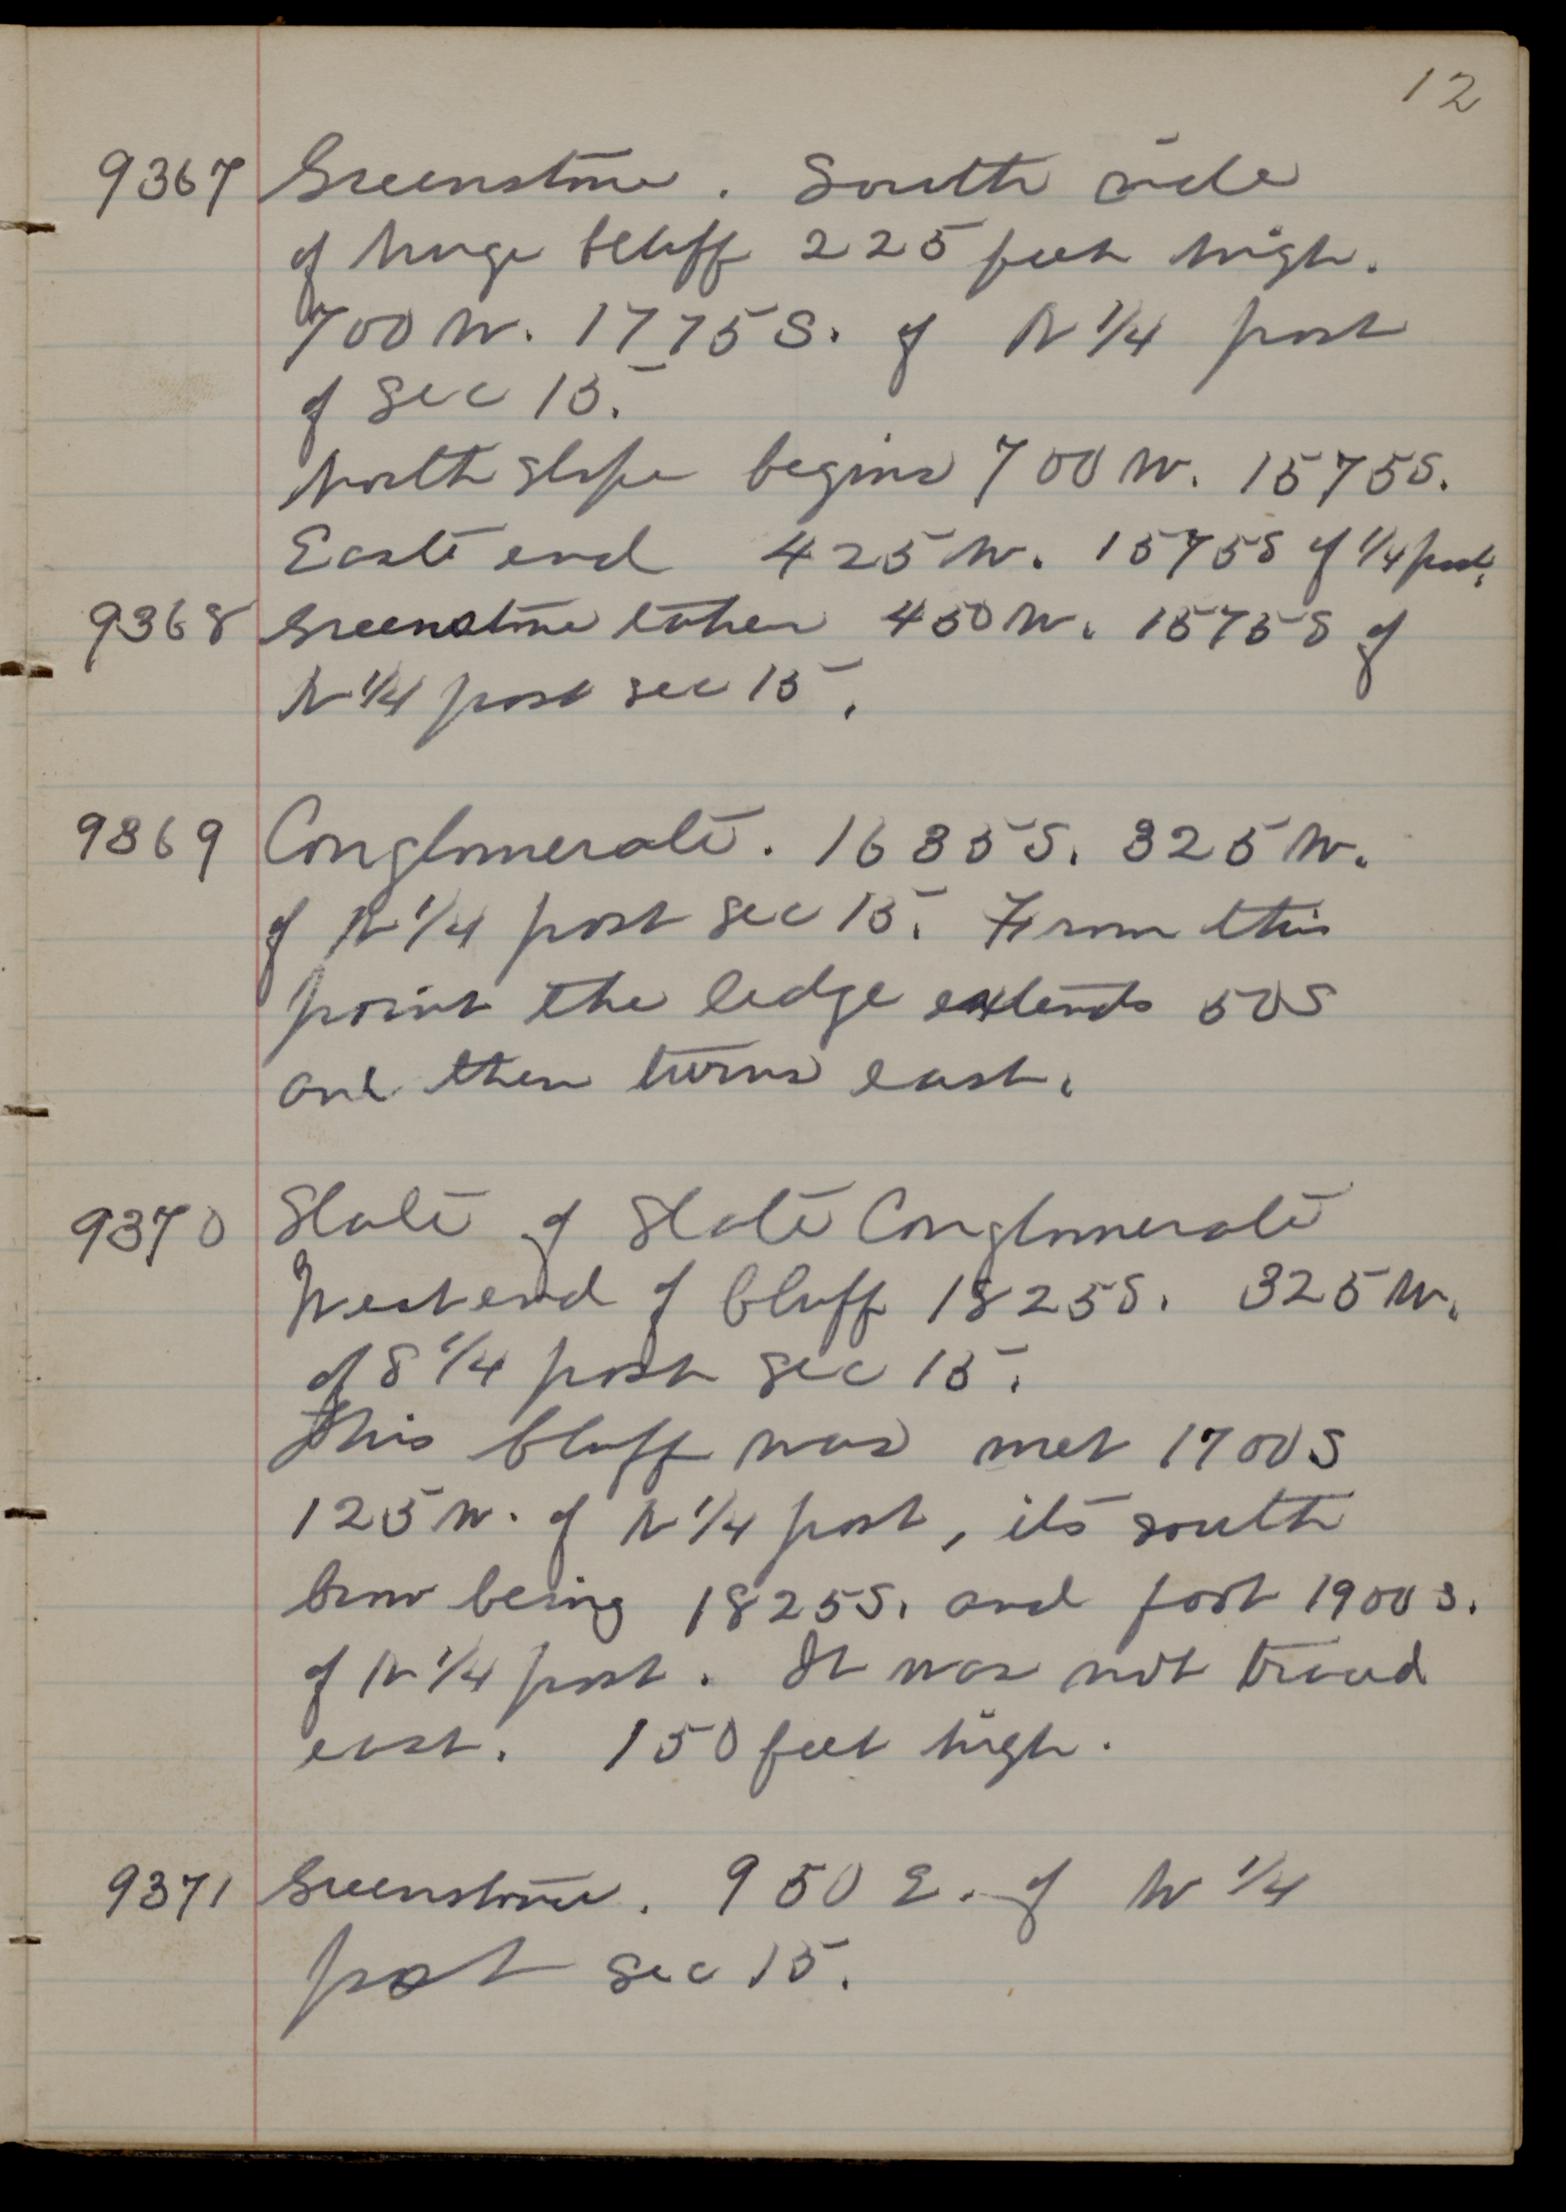 12
9367 Greenstone. South side
of huge bluff 225 feet high.
700 W. 1775 S. of N 1/4 post
of Sec 15.
North slope begins 700 W. 1575 S.
East end 425 W. 1575 S of 1/4 post.
9368 Greenstone taken 450 W. 1575 S of
N 1/4 post sec 15.
9369 Conglomerate. 1635 S. 325 W.
of N 1/4 post Sec 15. From this
point the ledge extends 50 S
and then turns east.
9370 Slate of Slate Conglomerate
West end of bluff 1825 S. 325 W.
of S 1/4 post Sec 15.
This bluff was met 1700 S
125 W. of N 1/4 post, its south
brow being 1825 S. and foot 1900 S.
of N 1/4 post. It was not traced
east. 150 feet high.
9371 Greenstone. 950 E. of W 1/4
post Sec 15.